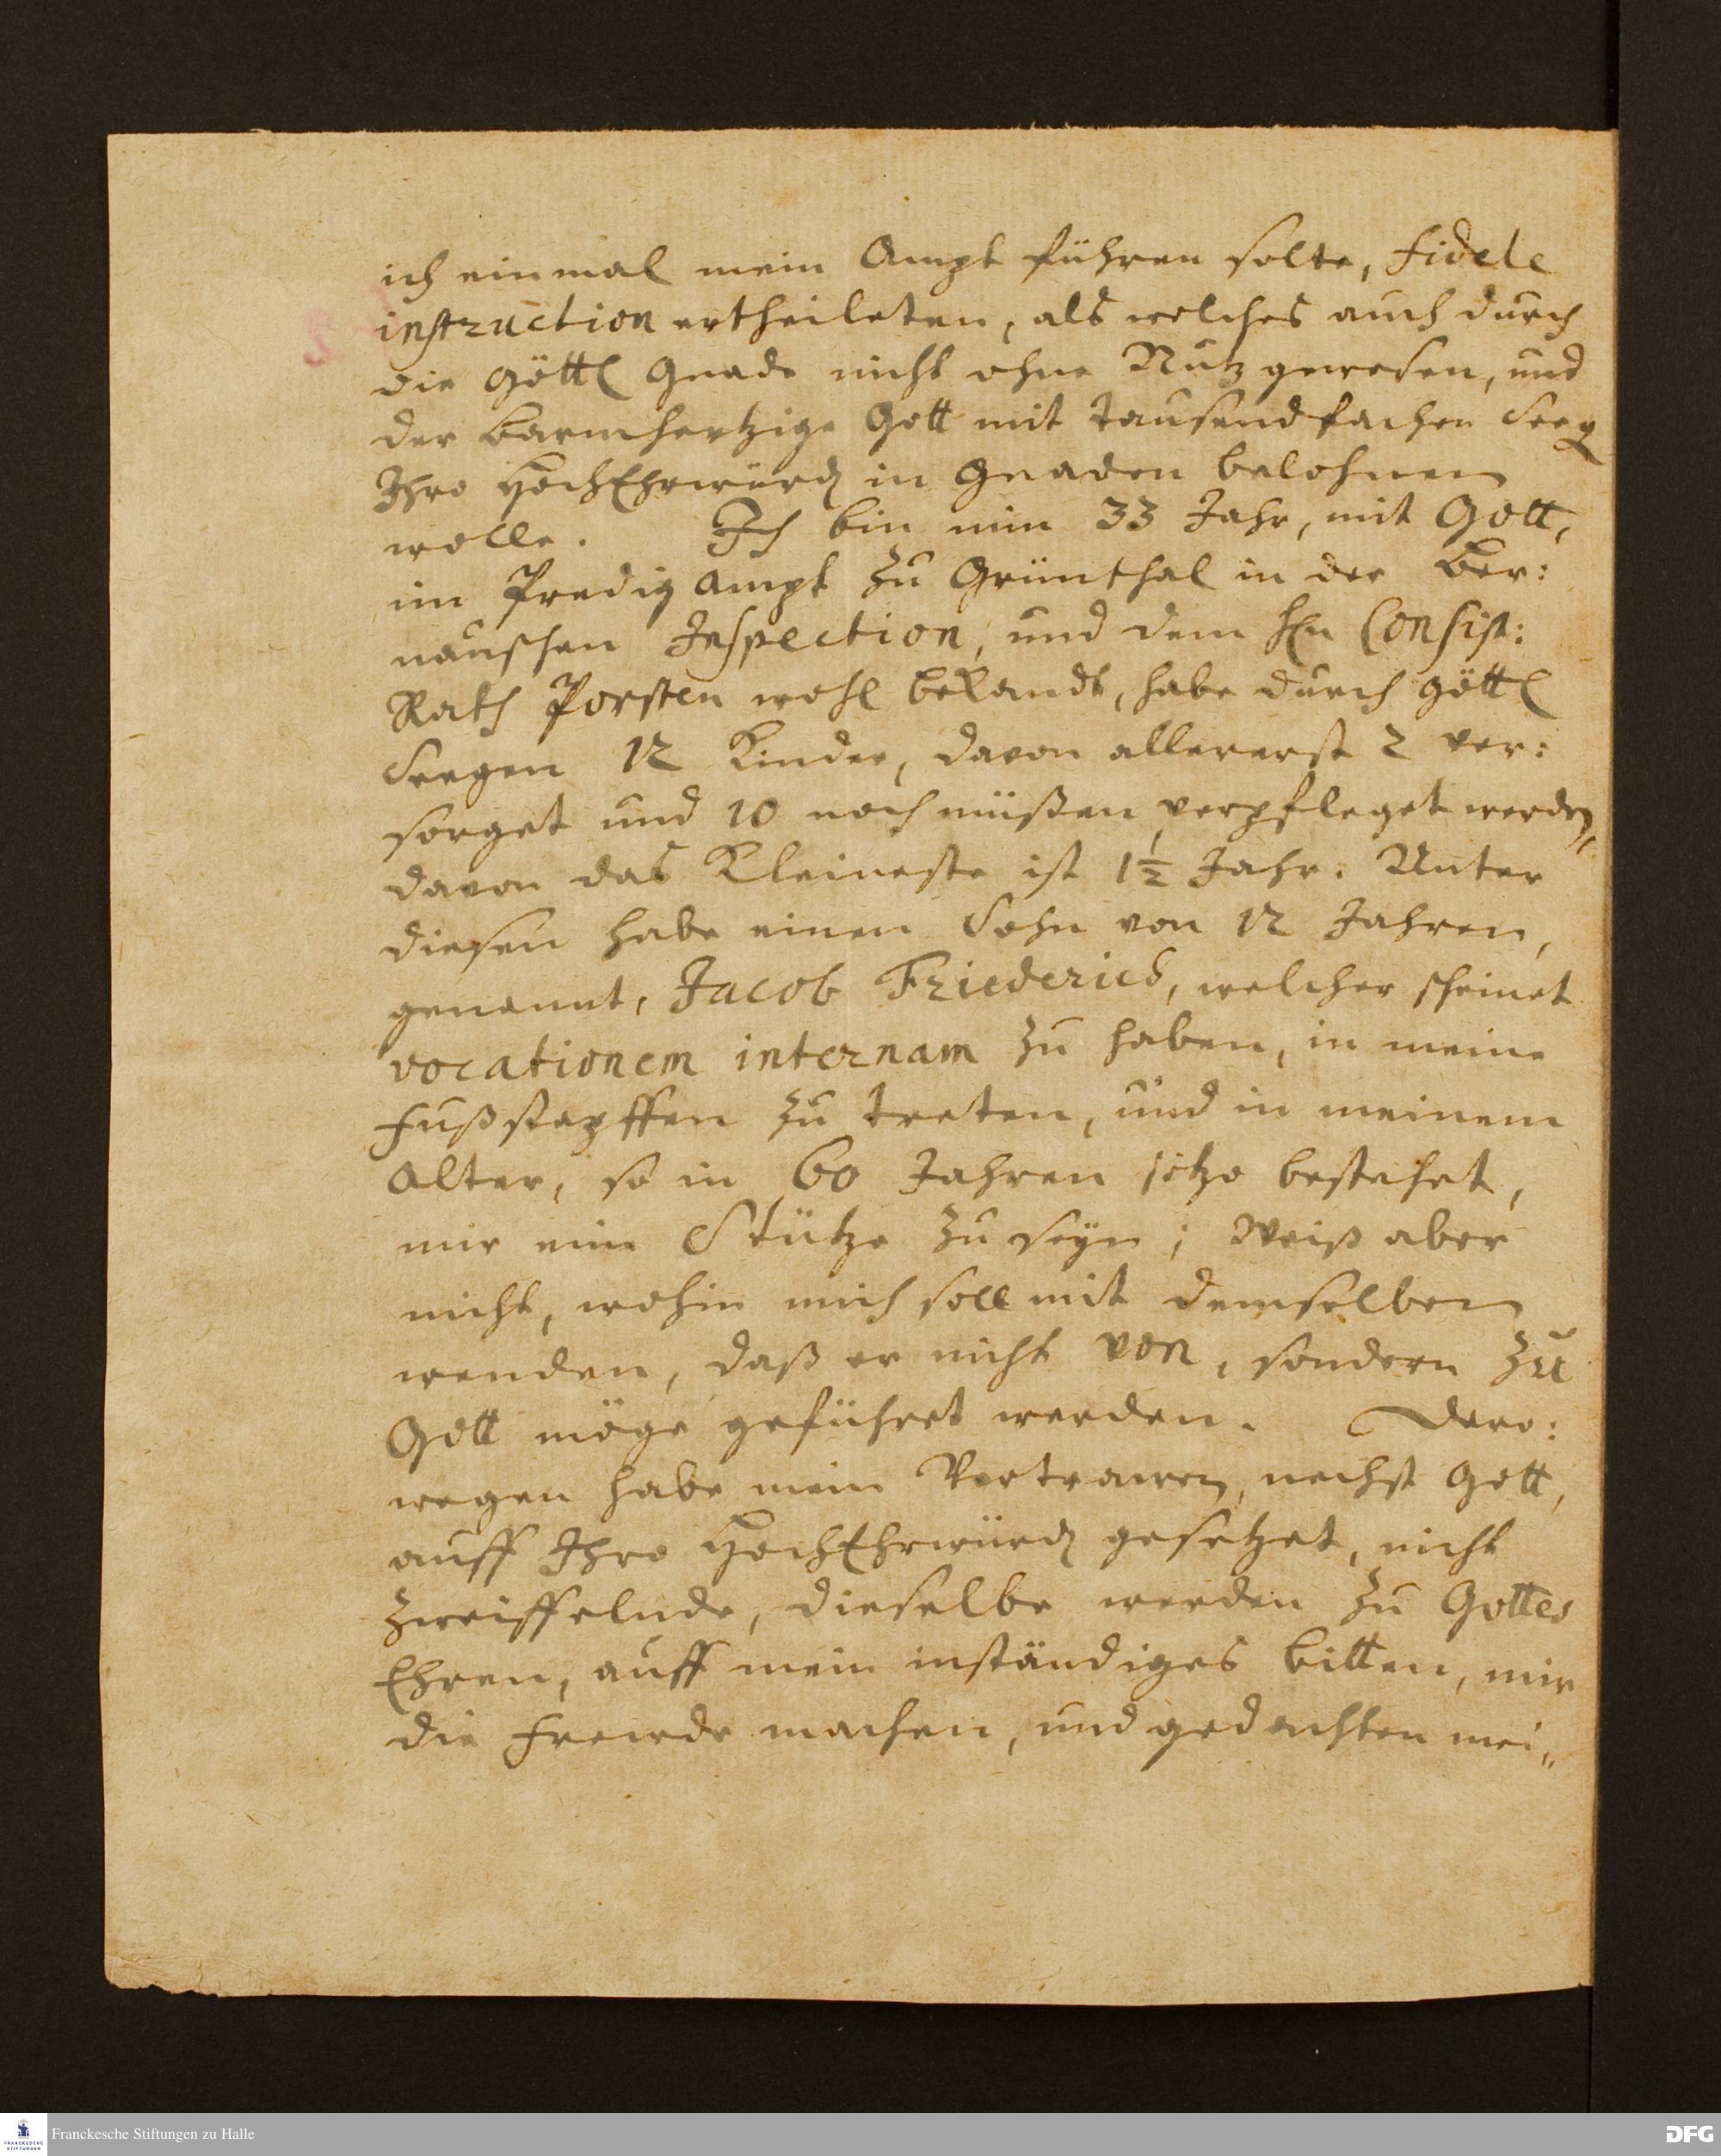 ich einmal mein Ampt führen solte, fidele
instruction ertheileten, als welches auch durch
die göttl Gnade nicht ohne Nutz gewesen, und
der barmhertzige Gott mit tausendfachen Seeg
Ihro HochEhrwürd in Gnaden belohnen
wolle. Ich bin nun 33 Jahr, mit Gott,
im Predig Ampt zu Grünthal in der Ber:
nauschen Inspection, und dem Hn Consist:
Rath Porsten wohl bekandt, habe durch göttl
Seegen 12 Kinder, davon allererst 2 ver:
sorget und 10 noch müßen verpfleget werden,
davon das Kleineste ist 1½ Jahr. Unter
diesen habe einen Sohn von 12 Jahren,
genannt, Jacob Friederich, welcher scheinet
vocationem internam zu haben, in meine
Fußstapffen zu treten, und in meinem
Alter, so in 60 Jahren jetzo bestehet,
mir eine Stütze zu seyn; Weiß aber
nicht, wohin mich soll mit demselben
wenden, daß er nicht von, sondern zu
Gott möge geführet werden. Dero:
wegen habe mein Vertrawen, nechst Gott,
auff Ihro HochEhrwürd gesetzet, nicht
zweiffelnde, dieselbe werden zu Gottes
Ehren, auff mein inständiges bitten, mir
die Frewde machen, und gedachten mei„
Franckesche Stiftungen zu Halle
DFG